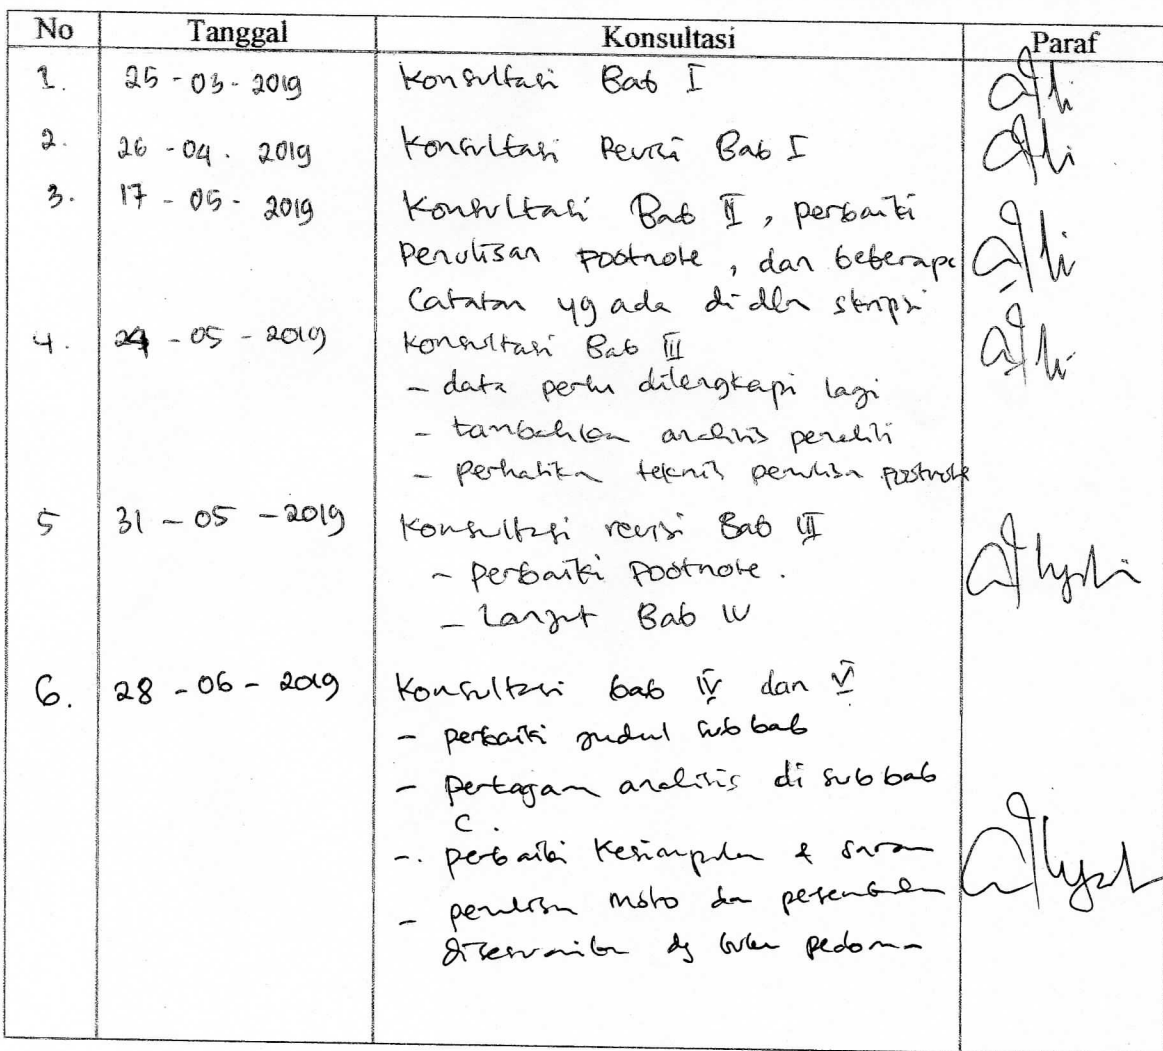 No Tanggal Konsultasi Paraf
1. 25 - 03 - 2019 Konsultasi Bab I
2. 26 - 04 . 2019 Konsultasi Revisi Bab I
3. 17 - 05 - 2019 Konsultasi Bab II , perbaiki
penulisan footnote , dan beberapa
Catatan yg ada di dlm skripsi
4. 24 - 05 - 2019 Konsultasi Bab III
- data perlu dilengkapi lagi
- tambahkan analisis peneliti
- perhatikan teknis penulisan footnote
5 31 - 05 - 2019 Konsultasi revisi Bab III
- perbaiki footnote .
- Lanjut Bab IV
6. 28 - 06 - 2019 Konsultasi bab IV dan V
- perbaiki judul sub bab
- pertajam analisis di sub bab
C .
- . perbaiki Kesimpulan & saran
- penulisan moto dan persembahan
disesuaikan dg buku pedoman